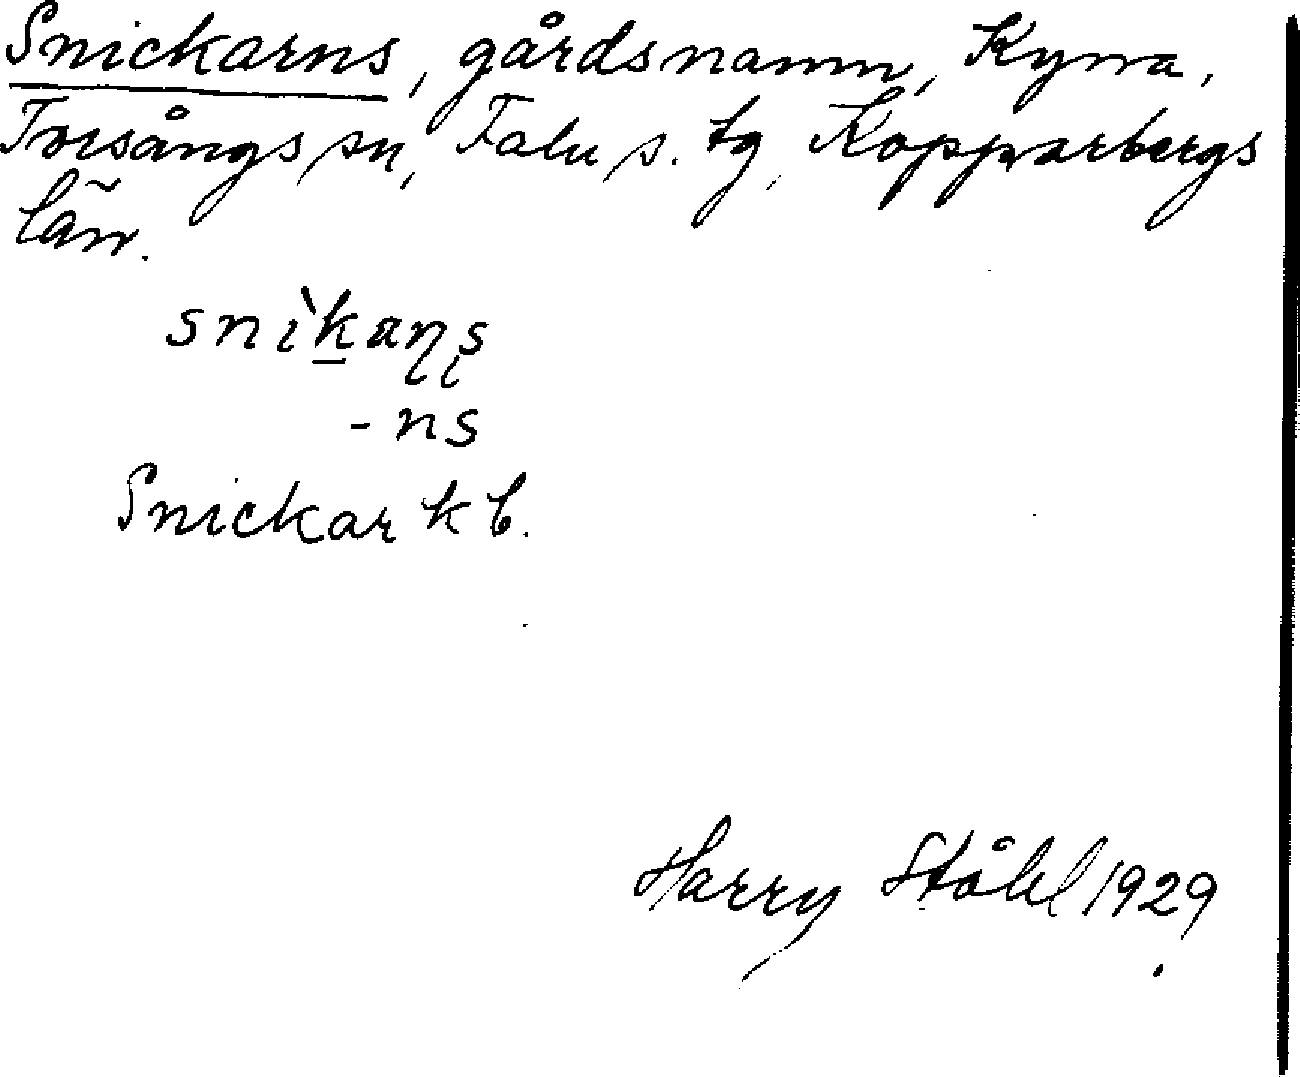 Snickarns, gårdsnamn, Kyrra,
Torsångs sn, Falu s. tg, Kopparbergs
län.
snìk̲aṇṣ
-ns
Snickar kb.
Harry Ståhl 1929